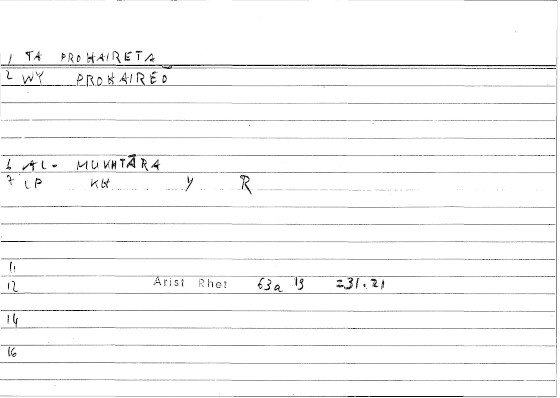 1 TA PROHAIRETA
2 WY PROHAIREO
6 AL- MUKHTĀRA
7 LP KH Y R
11
12 Arist Rhet 63a 19 231.21
14
16